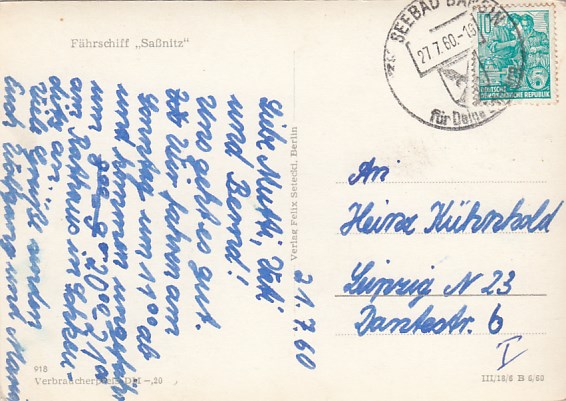 Fährschiff „Saßnitz"
Liebe Mutti, Vati
und Bernd!
Uns geht es gut.
Wir fahren am
Sonntag um 11⁰⁰ ab
und kommen ungefähr
um 20⁰⁰-21⁰⁰
am Rathaus in
an.
Viele Grüße senden
Euch Wolfgang und
21.7.60
918
Verbraucherpreis DM -,20
Verlag Felix Setecki, Berlin
SEEBAD BANSIN
27.7.60.-18
für Deine
10
6
DEUTSCHE
DEMOKRATISCHE REPUBLIK
An
Heinz Kühnhold
Leipzig N 23
Dantestr. 6
V
III/18/6 B 6/60